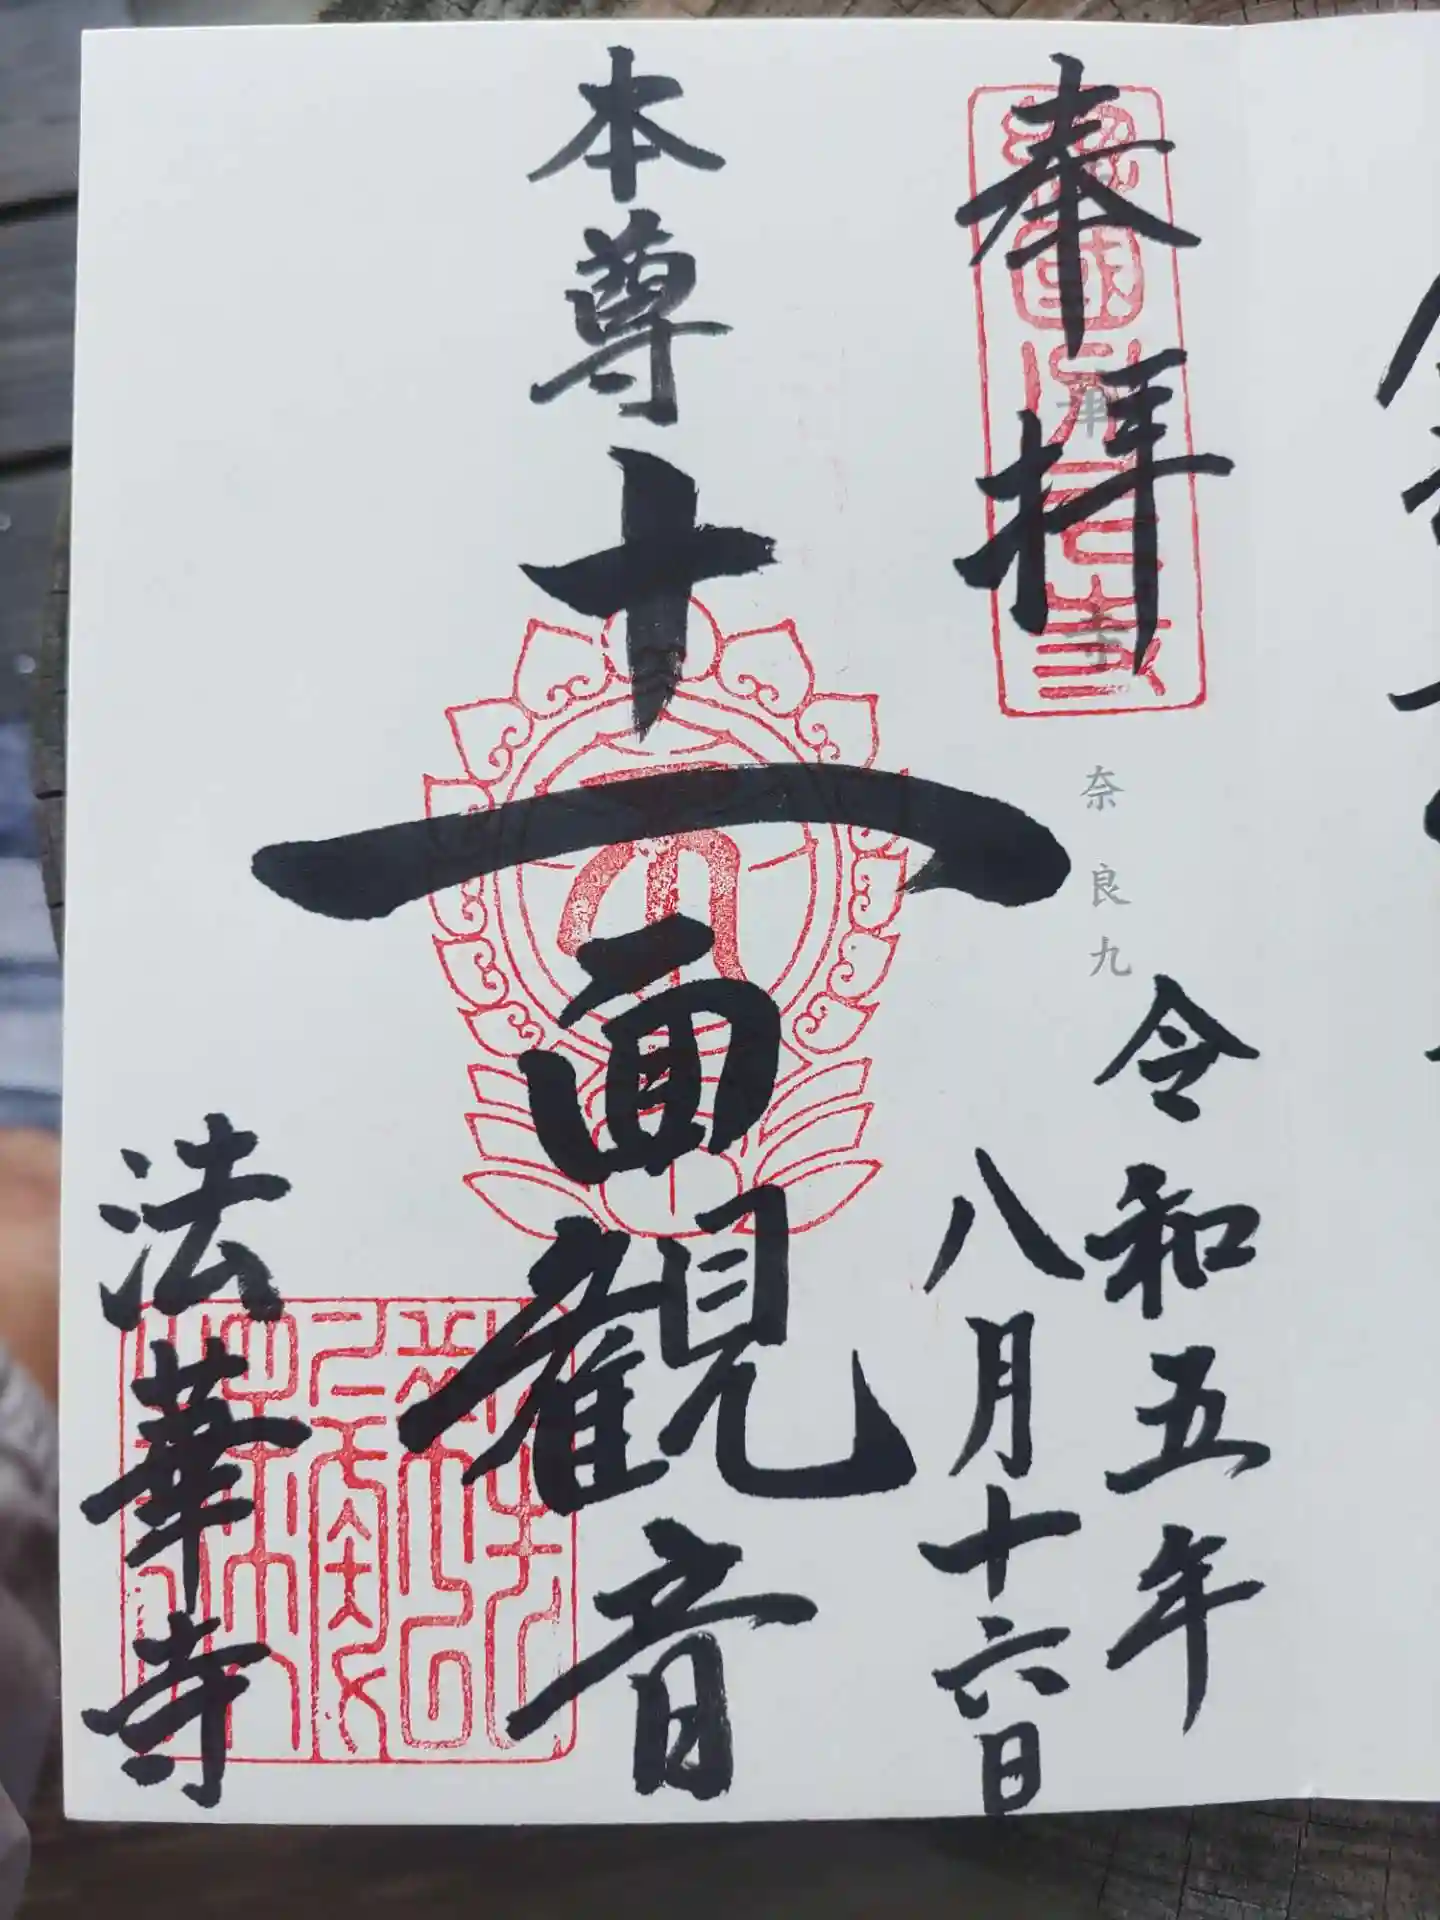 奉拝
奈良九
令和五年
八月十六日
本尊十一面観音
法華寺